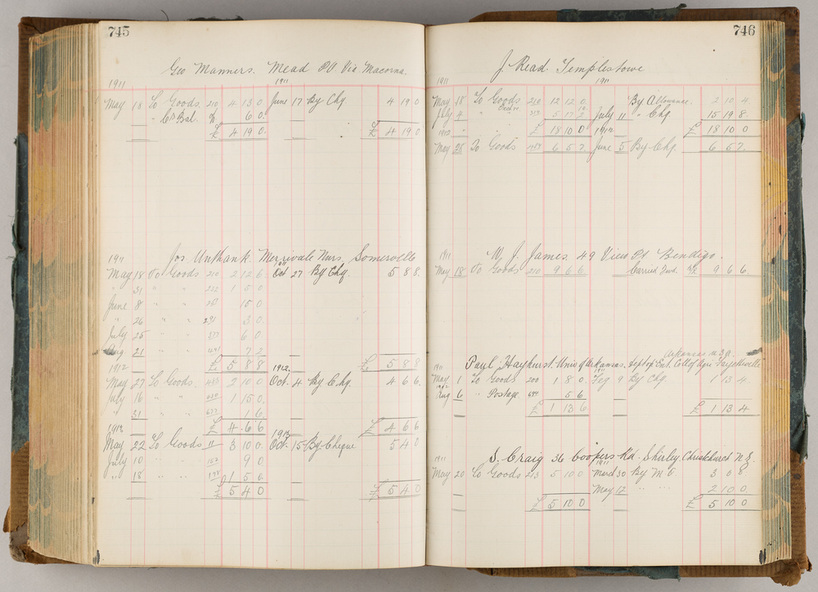 745
Geo Manners. Mead P.O. Via Macorna
1911 1911
May 18 To Goods 219 4 13 0 June 17 By Chq 4 19 0
" C/ Bal. 6 0
£ 4 19 0 £ 4 19 0
1911 Jos Unthank Merrivale Nurs. Somerville
1911
May 18 To Goods 2 12 6 Oct 27 By Chq 5 8 8
" 31 " " 1 5 0
June 8 " " 15 0
" 26 " " 231 3 0
July 25 " " 6 0
Aug 21 " " 7 2
1912 £ 5 8 8 1912 £ 5 8 8
May 27 To Goods 2 10 0 Oct. 4 By Chq 4 6 6
July 16 " " 1 15 0
" 31 " " 1 6
1912 £ 4 6 6 £ 4 6 6
May 22 To Goods 3 10 0 Oct. 15 By Cheque 5 4 0
July 10 " " 9 0
" 15 " " 1 5 6
£ 5 4 0 £ 5 4 0
746
J. Read Templestowe
1911 1911
May 18 To Goods 219 12 12 0 By Allowance 2 10 4
July 4 " " 5 17 2 July 11 " Chq 15 19 8
£ 18 10 0 1912 £ 18 10 0
May 25 To Goods 6 5 7 June 5 By Chq. 6 5 7
1911 W. J. James 49 View Pt Bendigo.
May 18 To Goods 220 9 6 6 Carried Fwd. 9 6 6
Arkansas U.S.A.
1911 Paul Hayhurst Univ of Arkansas. Dept of Ent. Coll of Agri Fayetteville
May 1 To Goods 200 1 8 0 Aug 9 By Chq 1 13 4
Aug 6 " Postage 5 6
£ 1 13 6 £ 1 13 4
S. Craig 36 Coopers Rd. Shirley Christchurch N.Z.
1911
May 20 To Goods 223 5 10 0 March 30 By M O 3 0 0
May 17 " " 2 10 0
£ 5 10 0 £ 5 10 0